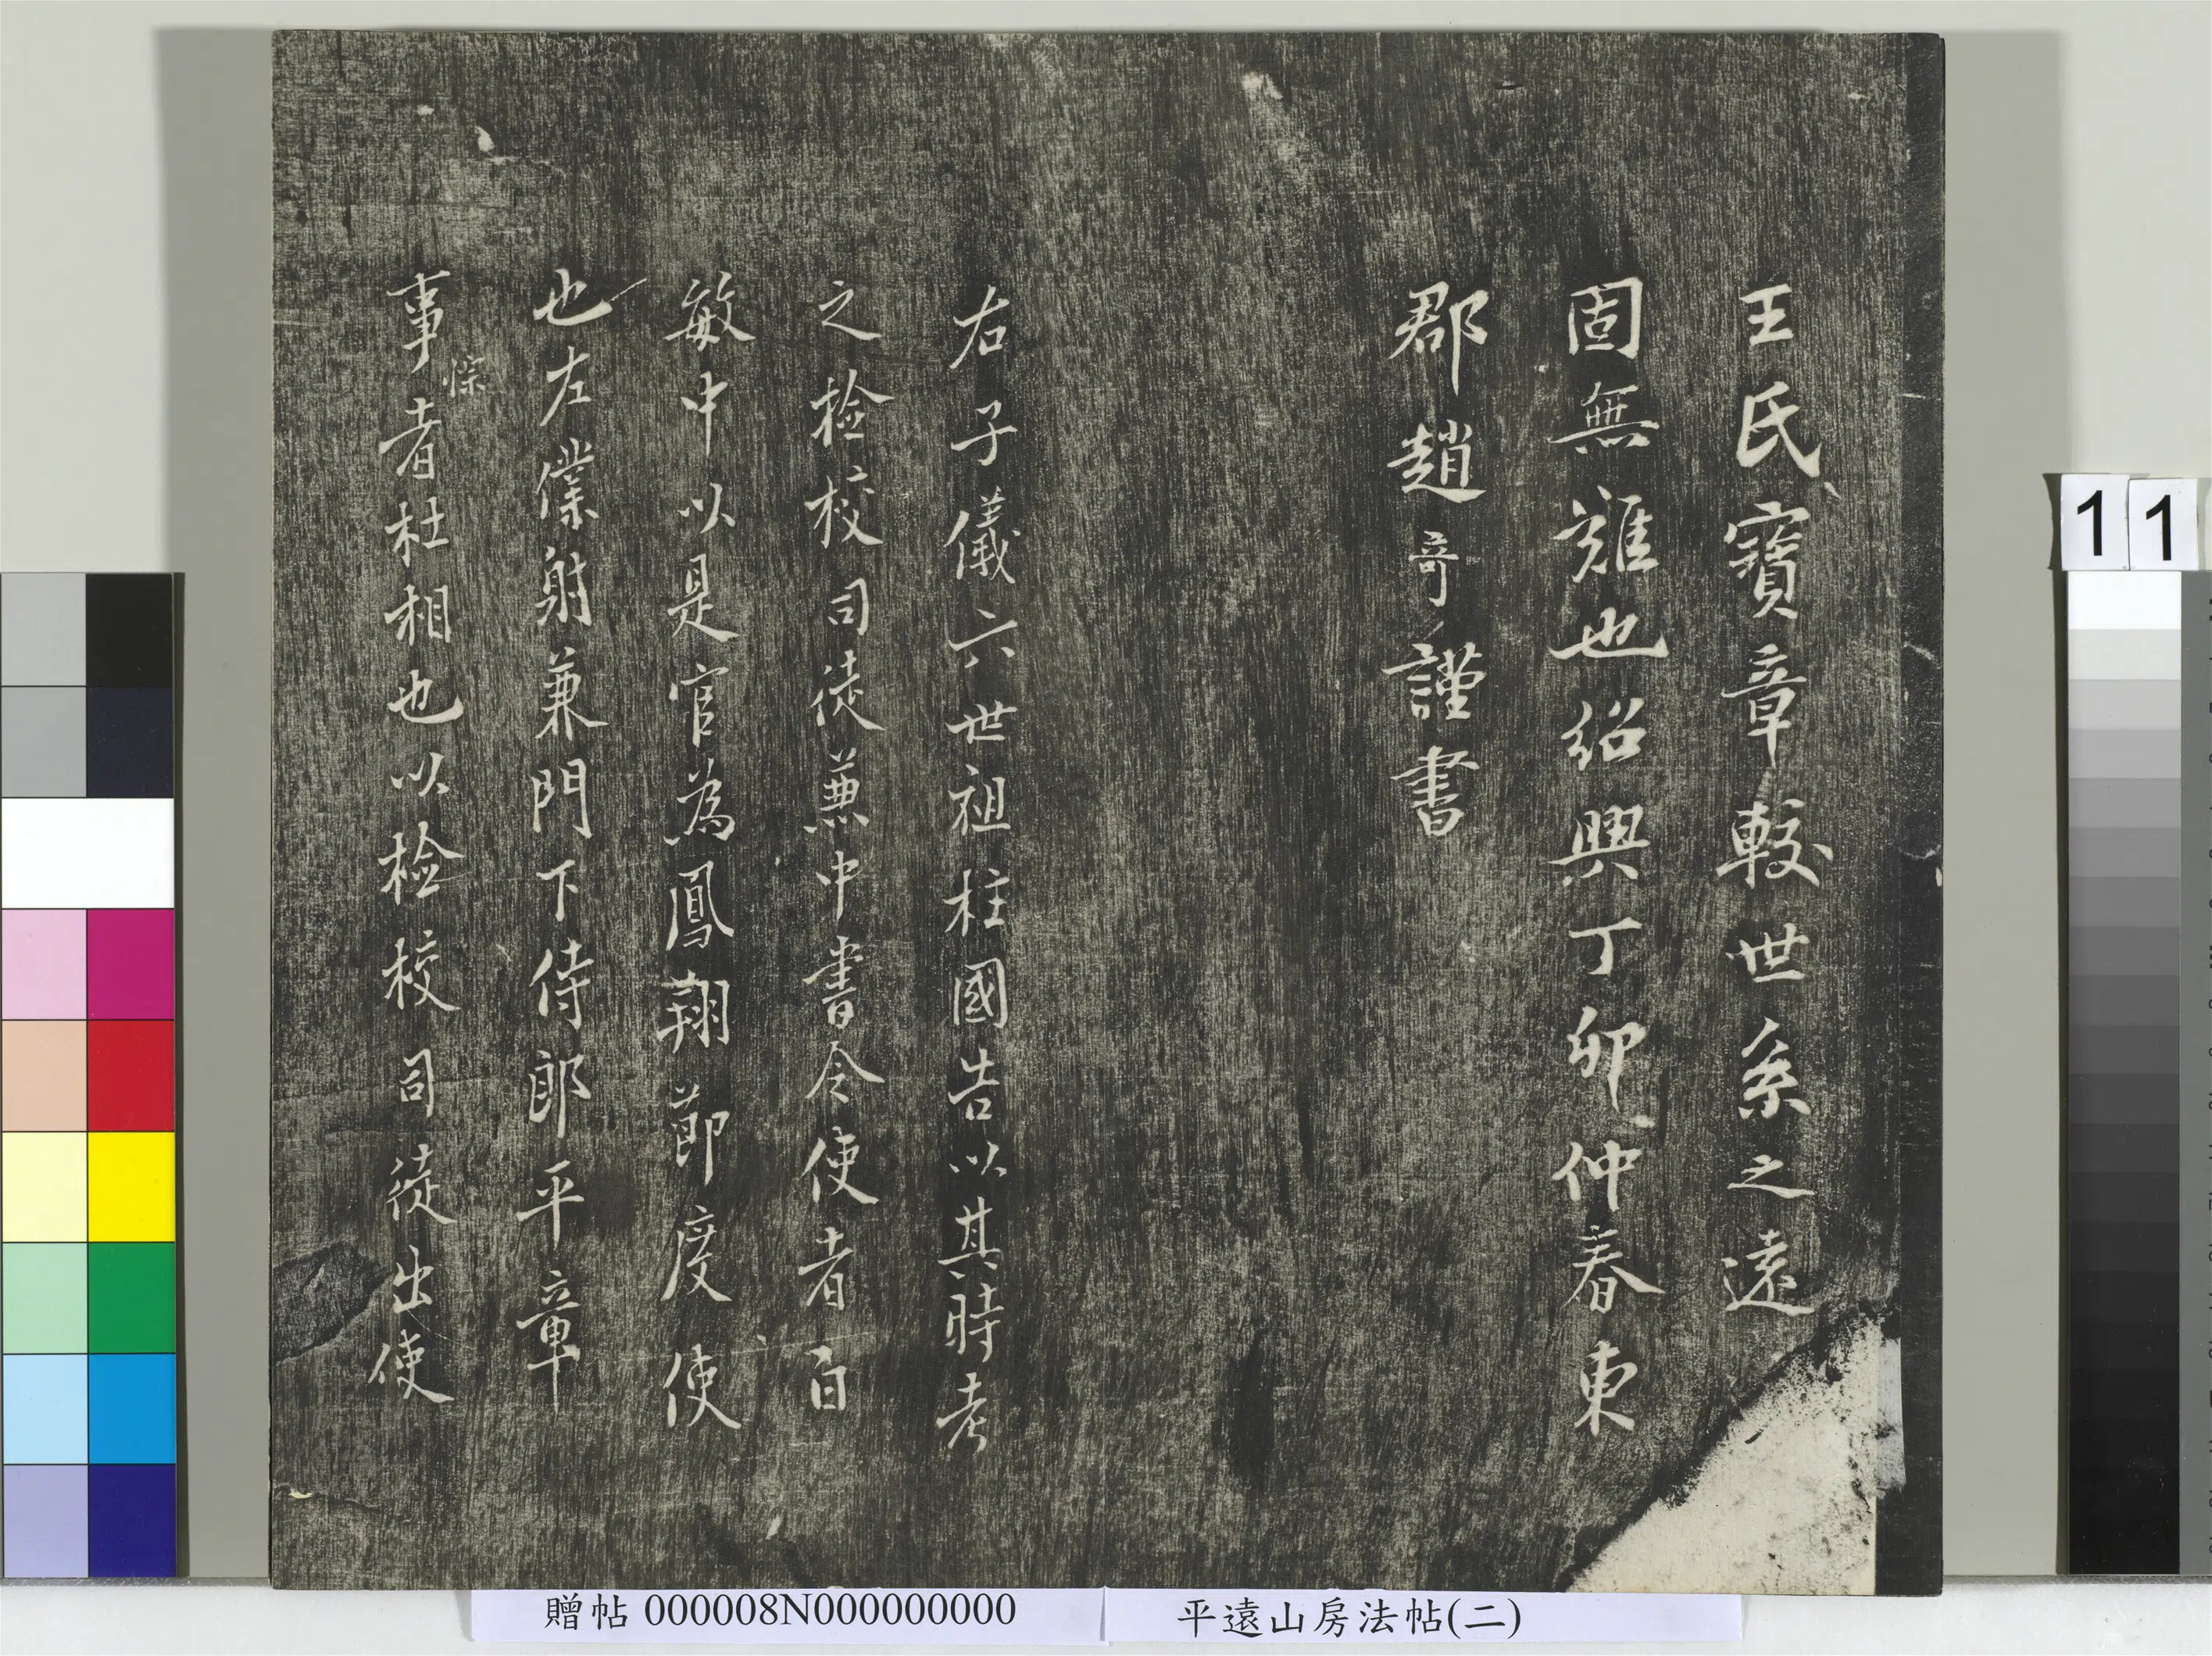 王氏寶章較世系之遠
固無難也紹興丁卯仲春東
郡趙奇謹書
右子儀六世祖柱國告以其時考
之檢校司徒兼中書令使者白
敏中以是官為鳳翔節度使
也左僕射兼門下侍郎平章
事悰者杜相也以檢校司徒出使
11
贈帖 000008N000000000
平遠山房法帖(二)